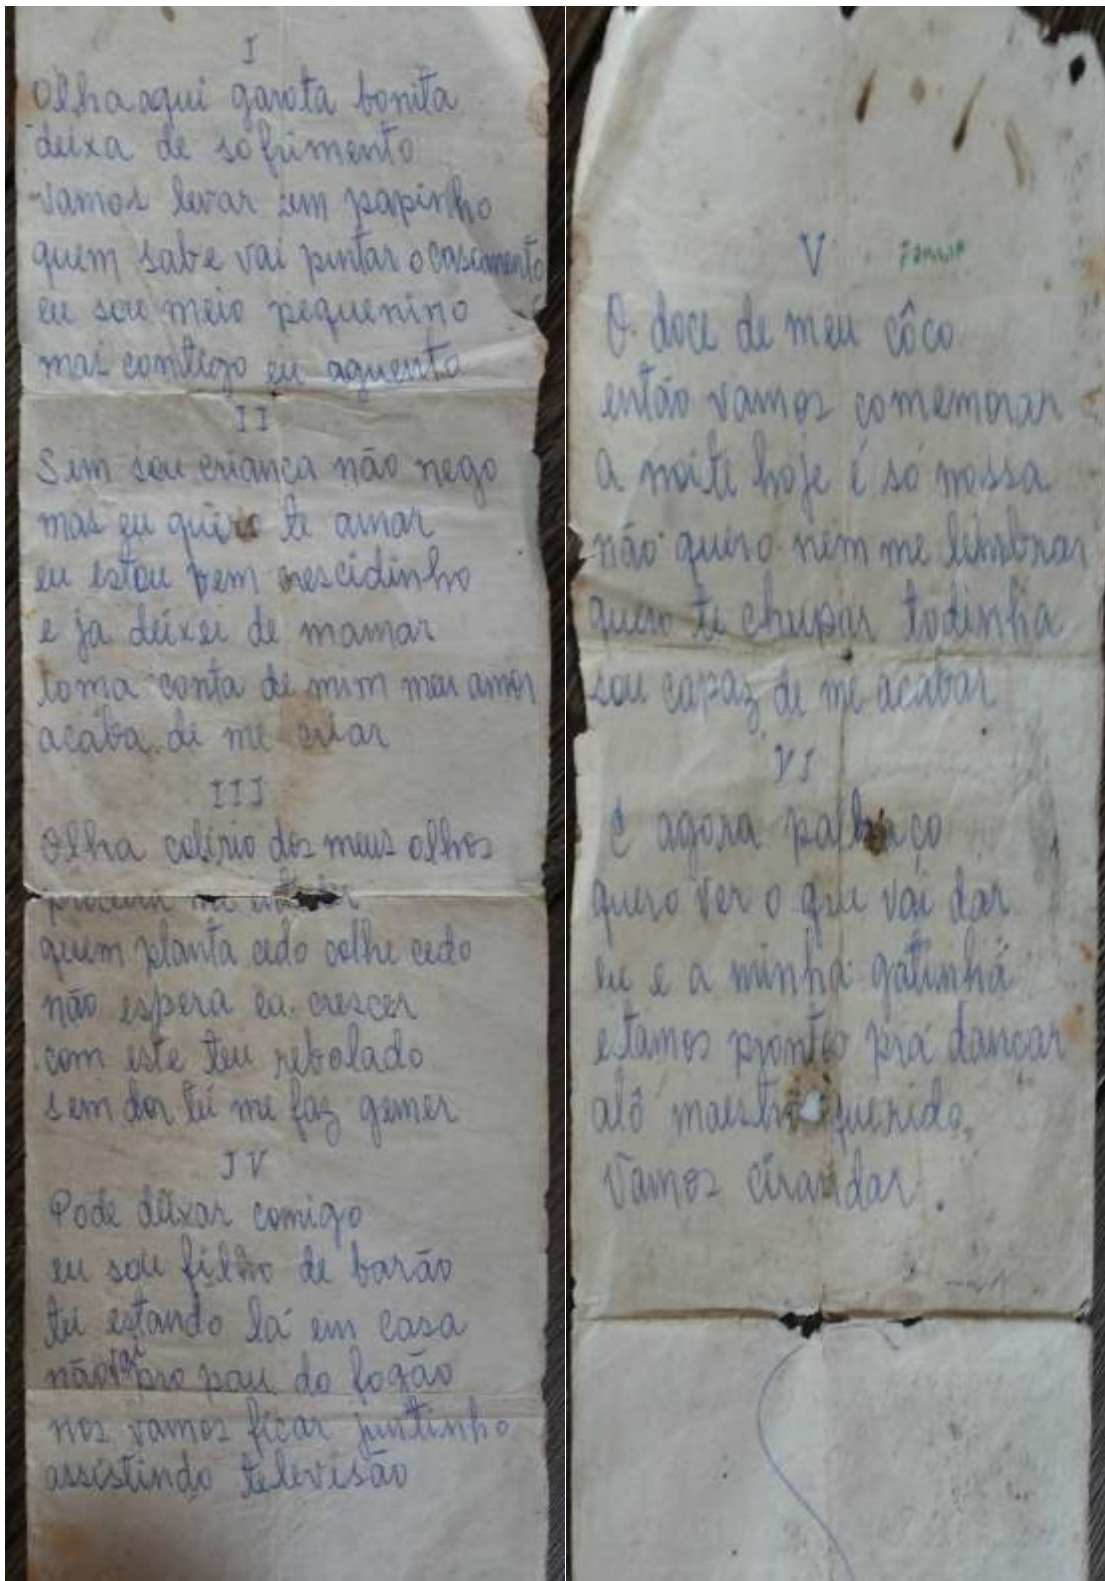 I
Olha aqui garota bonita
deixa de sofrimento
vamos levar um papinho
quem sabe vai pintar o casamento
eu sou meio pequenino
mas contigo eu aguento
II
Sim sou criança não nego
mas eu quero te amar
eu estou bem crescidinho
e ja deixei de mamar
toma conta de mim meu amor
acaba de me criar
III
Olha colírio dos meus olhos
procura me
quem planta cedo colhe cedo
não espera eu crescer
com este teu rebolado
sem dor tú me faz gemer
IV
Pode deixar comigo
eu sou filho de barão
tu estando lá em casa
não vai pro pau do fogão
nos vamos ficar juntinho
assistindo televisão
V
O doce de meu côco
então vamos comemorar
a noite hoje é só nossa
não quero nem me lembrar
quero te chupar todinha
sou capaz de me acabar
VI
E agora palhaço
quero ver o que vai dar
eu e a minha gatinha
estamos pronto prá dançar
alô maestro querido
vamos cirandar.